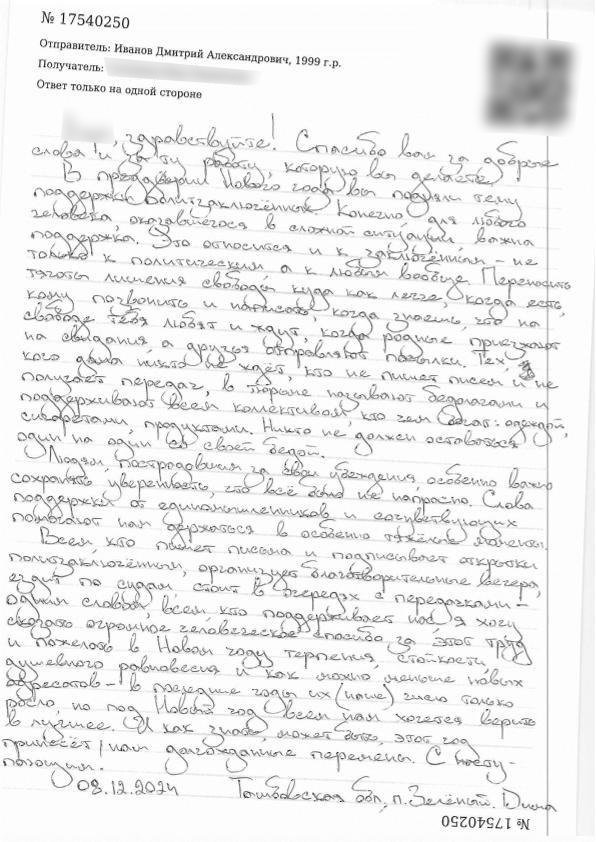 № 17540250
Отправитель: Иванов Дмитрий Александрович, 1999 г.р.
Получатель:
Ответ только на одной стороне
, здравствуйте! Спасибо вам за добрые
слова и за ту работу, которую вы делаете.
В преддверии Нового года вы подняли тему
поддержки политзаключённых. Конечно, для любого
человека, оказавшегося в сложной ситуации, важна
поддержка. Это относится и к заключённым – не
только к политическим, а к любым вообще. Переносить
тяготы лишения свободы куда как легче, когда есть,
кому позвонить и написать, когда знаешь, что на
свободе тебя любят и ждут, когда родные приезжают
на свидания а друзья отправляют посылки. Тех,
кого дома никто не ждёт, кто не пишет писем и не
получает передач, в тюрьме называют бедолагами и
поддерживают всем коллективом, кто чем богат: одеждой,
сигаретами, продуктами. Никто не должен оставаться
один на один со своей бедой.
Людям, пострадавшим за свои убеждения, особенно важно
сохранять уверенность, что всё было не напрасно. Слова
поддержки от единомышленников и сочувствующих
помогают нам держаться в особенно тяжёлые моменты.
Всем, кто пишет письма и подписывает открытки
политзаключённым, организует благотворительные вечера,
ездит по судам, стоит в очередях с передачками –
одним словом, всем, кто поддерживает нас, я хочу
сказать огромное человеческое спасибо за этот труд
и пожелать в Новом году терпения, стойкости,
душевного равновесия и как можно меньше новых
адресатов – в последние годы их (наше) число только
росло, но под Новый год всем нам хочется верить
в лучшее. И как знать, может быть, этот год
принесёт нам долгожданные перемены. С насту-
пающим.
08.12.2024 Тамбовская обл., п. Зелёный. Дима
№ 17540250